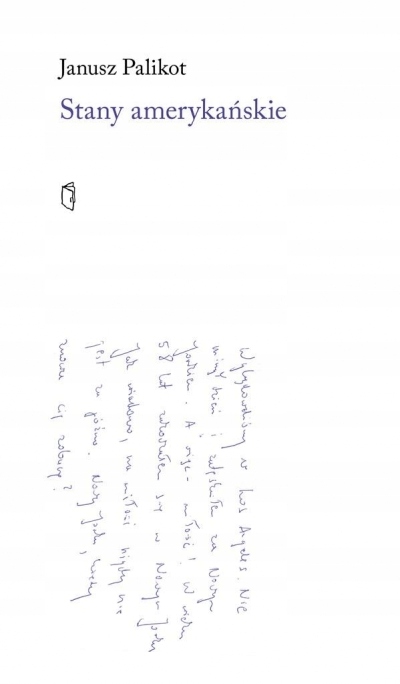 Janusz Palikot
Stany amerykańskie
Wylądowaliśmy w Los Angeles. Nie
minął dzień i za Nowym
Jorkiem. A więc - miłość! W wieku
58 lat zakochałem się w Nowym Jorku.
Jak wiadomo, na miłość nigdy nie
jest za późno. Nowy Jorku, kiedy
znowu cię zobaczę?